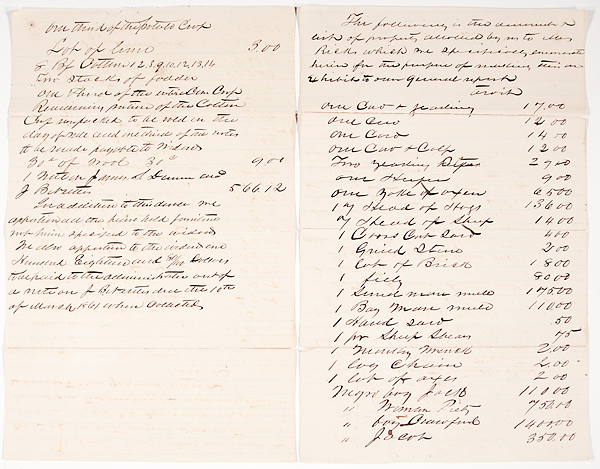 one third of the Potato Crop
Lot of lime 3.00
8 Bf Cotton 1 2 3 9 10, 12, 13, 14
Two Stacks of fodder
one third of the entire Corn Crop
Remaining portion of the Cotton
Crop unpacked to be sold on the
day of sale and one third of the notes
to be made payable to Widow
30# of Wool 30c 9.00
1 Note on James S.
J 566.12
In addition to the above we
apportioned the heirs
not herein specified to the widow
We also apportion to the widow one
Hundred Eighteen and Dollars
to be paid to the administrator out of
a note on J due the 10th
of March 1861 when Collected
The following is the account &
list of property allowed by us to Mrs
Ricks which we specifically enumerate
herein for the purpose of making this an
exhibit to our General report
To wit
one Cow & yearling 17.00
one Cow 12 00
one Cow 14 00
one Cow & Calf 12 00
Two yearling
one Heifer 9 00
one Yoke of oxen 65 00
17 Head of Hogs 136 00
7 Head of Sheep 14 00
1 Cross Cut Saw 4 00
1 Grind Stone 2 00
1 Lot of Brick 18 00
1 80.00
1 mare mule 175 00
1 Bay Mare mule 110.00
1 Hand saw .50
1 pr Sheep Shears 75
1 Monkey Wrench 2.00
1 log Chain 2.00
1 lot of axes 2 00
Negro boy Jack 1100
" Woman 750.00
" boy Crawford 1400.00
" Jacob 350.00